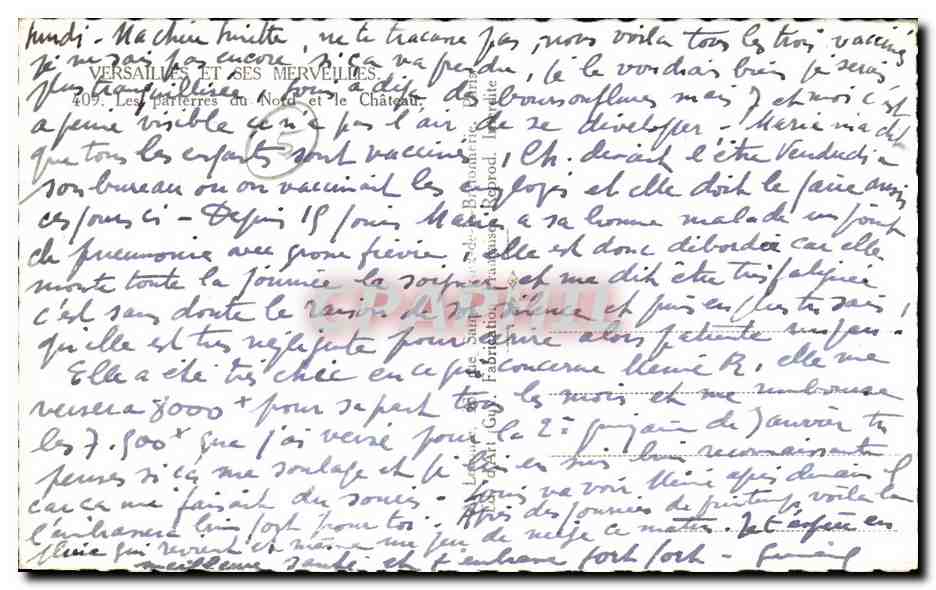 Lundi - Ma chère Ninette, ne te tracasse pas, nous voilà tous les trois vaccinés
je ne sais pas encore si ça va prendre, je le voudrais bien je serais
VERSAILLES ET SES MERVEILLES.
plus tranquillisée, nous a déjà des boursouflures mais J et moi c'est
409. Les parterres du Nord et le Château.
à peine visible ça n'a pas l'air de se développer - Marie m'a dit
que tous les enfants sont vaccinés, Ch. devait l'être Vendredi à
son bureau où on vaccinait les employés et elle doit le faire aussi
ces jours ci - Depuis 15 jours Marie a sa bonne malade un point
de pneumonie avec grosse fièvre, elle est donc débordée car elle
monte toute la journée la soigner et me dit être très fatiguée
c'est sans doute le raison de son silence et puis en plus tu sais
qu'elle est très négligente pour écrire alors patiente un peu.
Elle a été très chic en ce qui concerne Mémé R, elle me
versera 8000 x pour sa part tous les mois et me rembourse
les 7.500 x que j'ai versé pour la 2e quinzaine de Janvier tu
penses si ça me soulage et je lui en suis bien reconnaissante
car ça me faisait du soucis - vais voir Mémé après demain je
l'embrasserai bien fort pour toi. Après des journées de printemps voilà la
qui revient et même un peu de neige ce matin. Je t'espère en
meilleure santé et t'embrasse fort fort -
Fabrication Française - Reprod. Interdite
CPARAMA